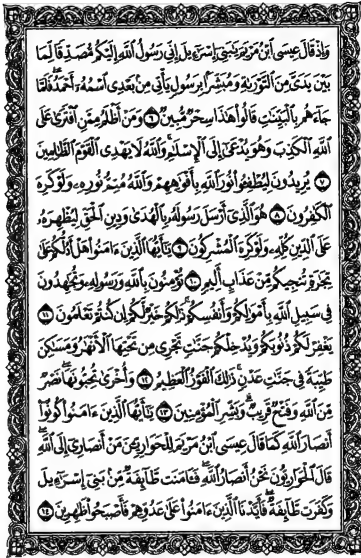 وَإِذْ قَالَ عِيسَى ٱبْنُ مَرْيَمَ يَٰبَنِىٓ إِسْرَٰٓءِيلَ إِنِّى رَسُولُ ٱللَّهِ إِلَيْكُم مُّصَدِّقًا لِّمَا
بَيْنَ يَدَىَّ مِنَ ٱلتَّوْرَىٰةِ وَمُبَشِّرًۢا بِرَسُولٍ يَأْتِى مِنۢ بَعْدِى ٱسْمُهُۥٓ أَحْمَدُ فَلَمَّا
جَآءَهُم بِٱلْبَيِّنَٰتِ قَالُوا۟ هَٰذَا سِحْرٌ مُّبِينٌ ٦ وَمَنْ أَظْلَمُ مِمَّنِ ٱفْتَرَىٰ عَلَى
ٱللَّهِ ٱلْكَذِبَ وَهُوَ يُدْعَىٰٓ إِلَى ٱلْإِسْلَٰمِ وَٱللَّهُ لَا يَهْدِى ٱلْقَوْمَ ٱلظَّٰلِمِينَ
٧ يُرِيدُونَ لِيُطْفِـُٔوا۟ نُورَ ٱللَّهِ بِأَفْوَٰهِهِمْ وَٱللَّهُ مُتِمُّ نُورِهِۦ وَلَوْ كَرِهَ
ٱلْكَٰفِرُونَ ٨ هُوَ ٱلَّذِىٓ أَرْسَلَ رَسُولَهُۥ بِٱلْهُدَىٰ وَدِينِ ٱلْحَقِّ لِيُظْهِرَهُۥ
عَلَى ٱلدِّينِ كُلِّهِۦ وَلَوْ كَرِهَ ٱلْمُشْرِكُونَ ٩ يَٰٓأَيُّهَا ٱلَّذِينَ ءَامَنُوا۟ هَلْ أَدُلُّكُمْ عَلَىٰ
تِجَٰرَةٍ تُنجِيكُم مِّنْ عَذَابٍ أَلِيمٍ ١٠ تُؤْمِنُونَ بِٱللَّهِ وَرَسُولِهِۦ وَتُجَٰهِدُونَ
فِى سَبِيلِ ٱللَّهِ بِأَمْوَٰلِكُمْ وَأَنفُسِكُمْ ذَٰلِكُمْ خَيْرٌ لَّكُمْ إِن كُنتُمْ تَعْلَمُونَ ١١
يَغْفِرْ لَكُمْ ذُنُوبَكُمْ وَيُدْخِلْكُمْ جَنَّٰتٍ تَجْرِى مِن تَحْتِهَا ٱلْأَنْهَٰرُ وَمَسَٰكِنَ
طَيِّبَةً فِى جَنَّٰتِ عَدْنٍ ذَٰلِكَ ٱلْفَوْزُ ٱلْعَظِيمُ ١٢ وَأُخْرَىٰ تُحِبُّونَهَا نَصْرٌ
مِّنَ ٱللَّهِ وَفَتْحٌ قَرِيبٌ وَبَشِّرِ ٱلْمُؤْمِنِينَ ١٣ يَٰٓأَيُّهَا ٱلَّذِينَ ءَامَنُوا۟ كُونُوٓا۟
أَنصَارَ ٱللَّهِ كَمَا قَالَ عِيسَى ٱبْنُ مَرْيَمَ لِلْحَوَارِيِّـۧنَ مَنْ أَنصَارِىٓ إِلَى ٱللَّهِ
قَالَ ٱلْحَوَارِيُّونَ نَحْنُ أَنصَارُ ٱللَّهِ فَـَٔامَنَت طَّآئِفَةٌ مِّنۢ بَنِىٓ إِسْرَٰٓءِيلَ
وَكَفَرَت طَّآئِفَةٌ فَأَيَّدْنَا ٱلَّذِينَ ءَامَنُوا۟ عَلَىٰ عَدُوِّهِمْ فَأَصْبَحُوا۟ ظَٰهِرِينَ ١٤